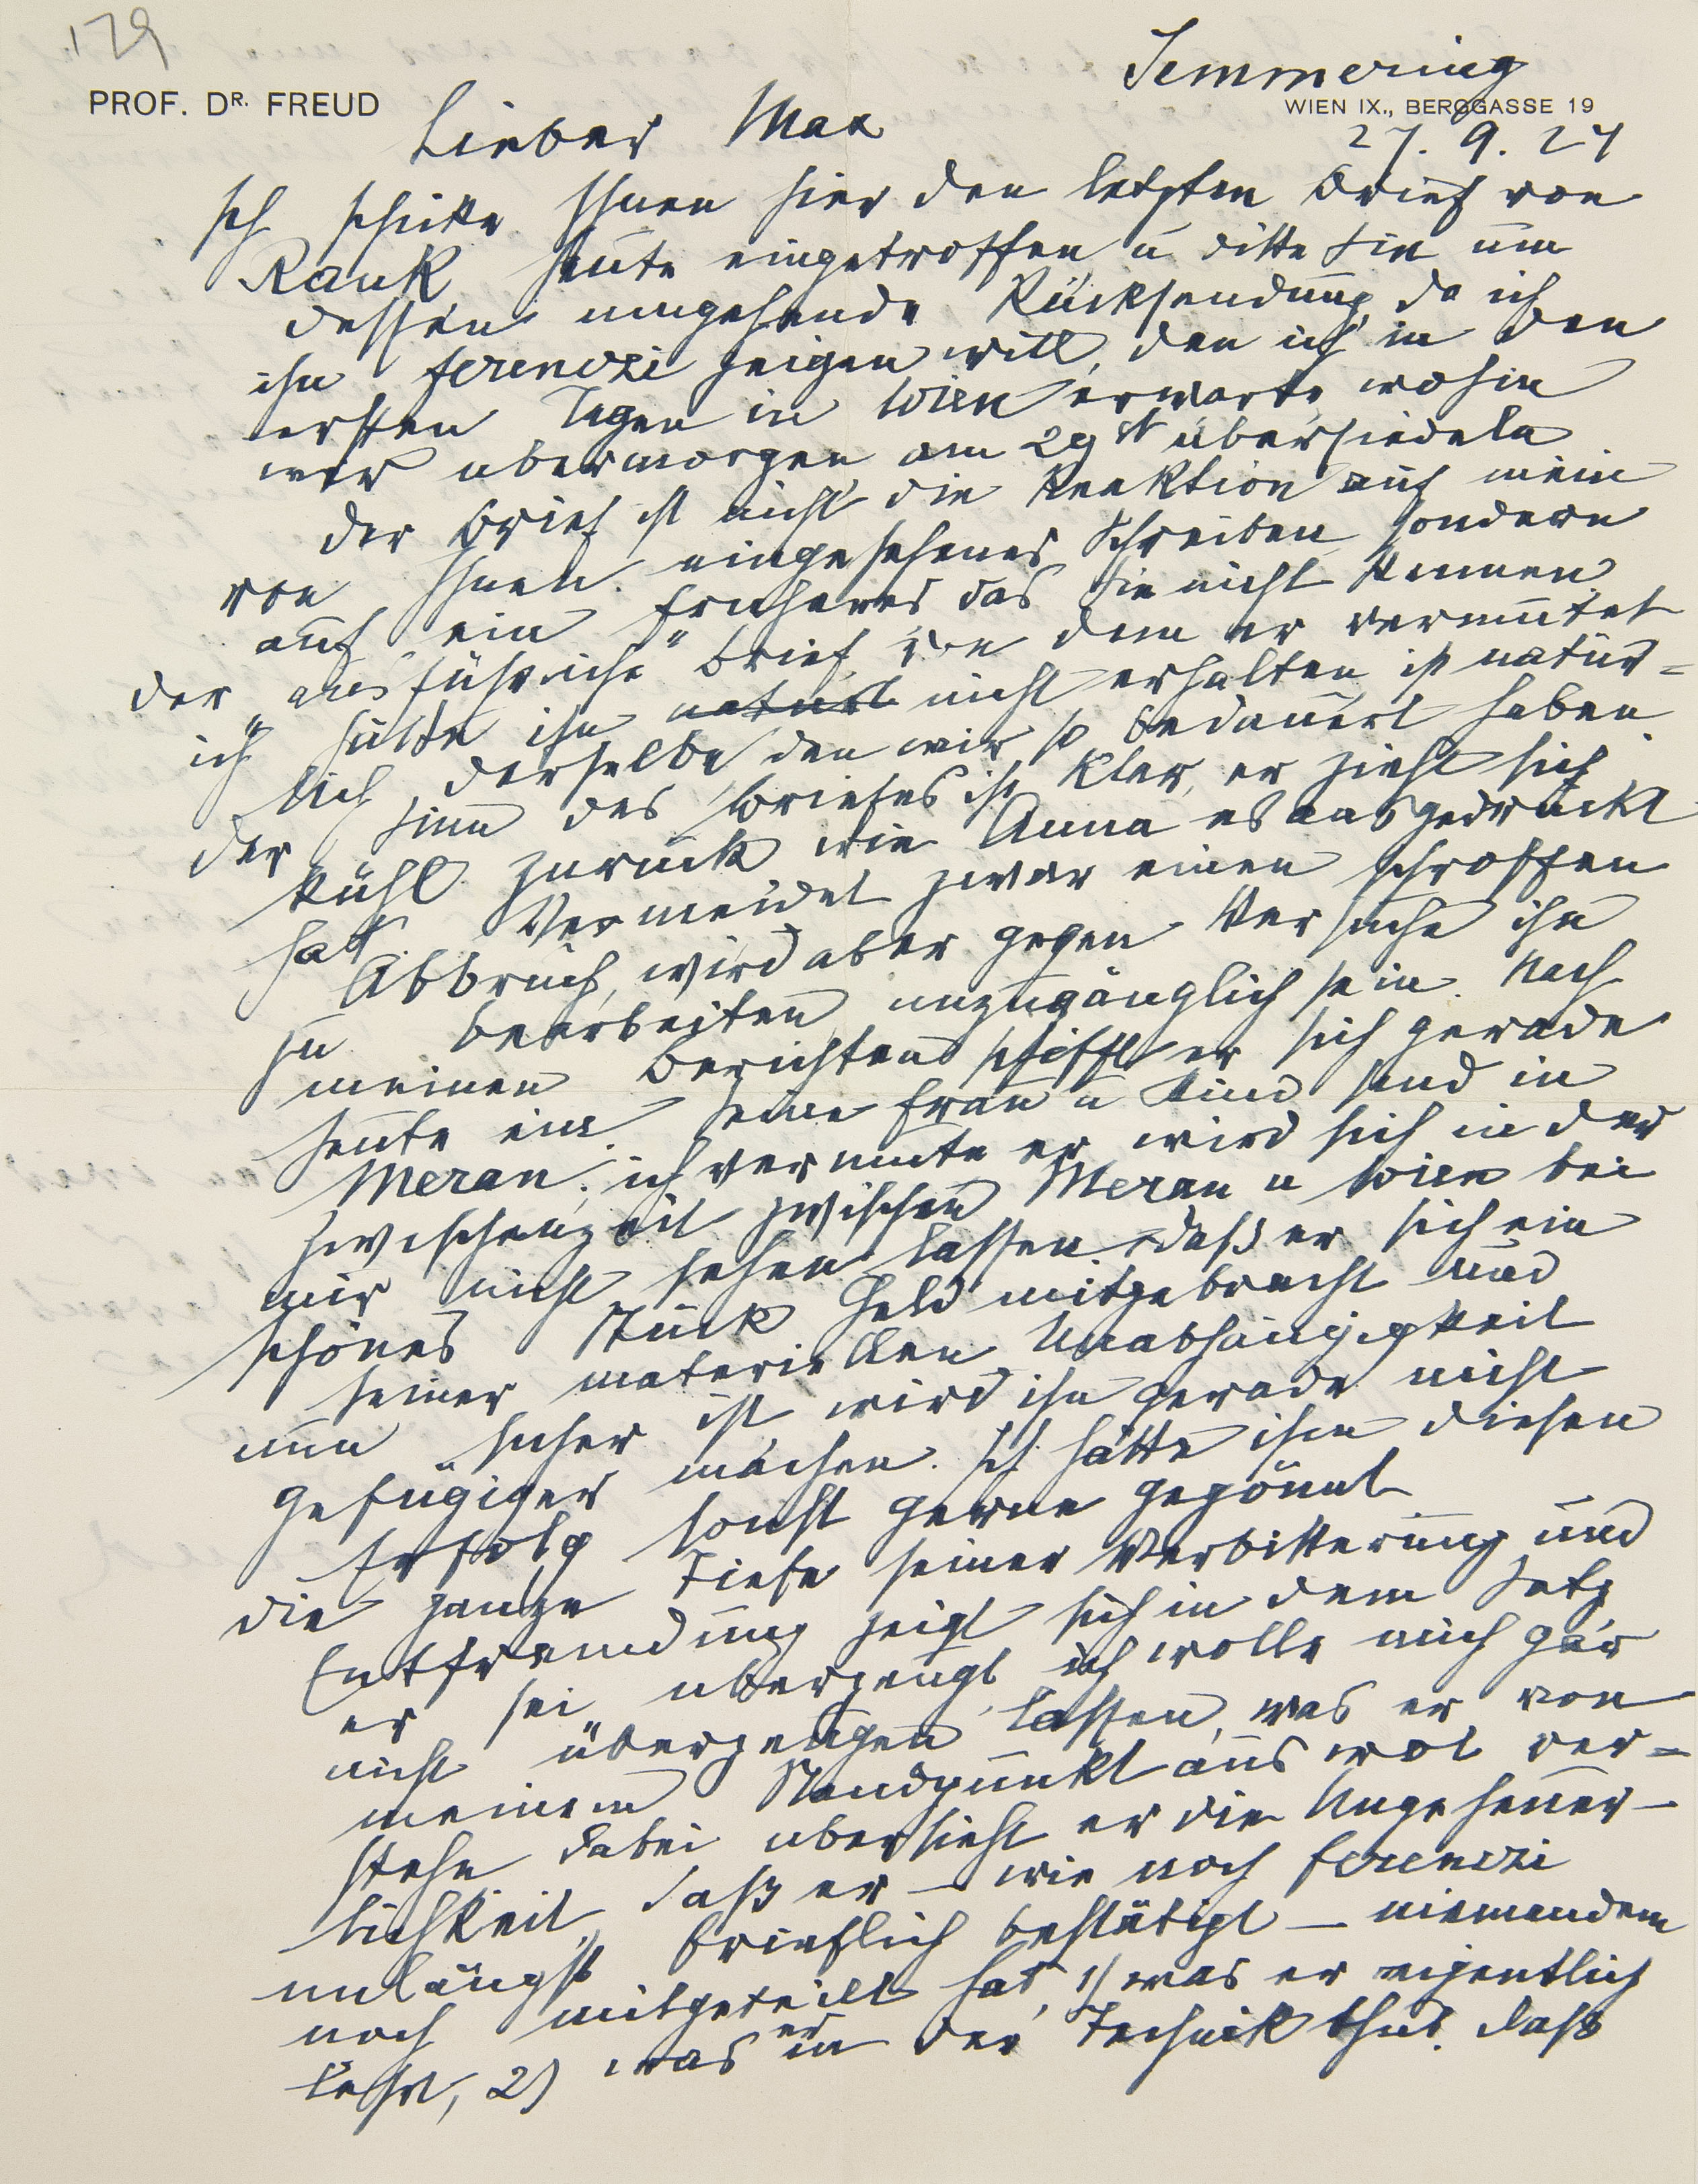 179
Semmering
PROF. DR. FREUD
WIEN IX., BERGGASSE 19
27. 9. 24
Lieber Max
Ich schicke Ihnen hier den letzten Brief von
Rank heute eingetroffen u bitte Sie um
dessen umgehende Rücksendung, da ich
ihn Ferenczi zeigen will, den ich in den
ersten Tagen in Wien erwarte, wohin
wir übermorgen am 29st übersiedeln
Der Brief ist nicht die Reaktion auf mein
von Ihnen eingesehenes Schreiben sondern
auf ein früheres das Sie nicht kennen
Der „ausführliche" Brief, von dem er vermutet
ich hätte ihn naturl nicht erhalten, ist natür=
lich derselbe den wir so bedauert haben.
Der Sinn des Briefes ist klar, er zieht sich
kühl zurück wie Anna es ausgedrückt
hat. Vermeidet zwar einen schroffen
Abbruch, wird aber gegen Versuche ihn
zu bearbeiten unzugänglich sein. Nach
meinen Berichten schifft er sich gerade
heute ein. Seine Frau u Kind sind in
Meran; ich vermute er wird sich in der
Zwischenzeit zwischen Meran u Wien bei
mir nicht sehen lassen. Daß er sich ein
schönes Stück Geld mitgebracht und
seiner materiellen Unabhängigkeit
nun sicher ist wird ihn gerade nicht
gefügiger machen. Ich hätte ihm diesen
Erfolg sonst gerne gegönnt
Die ganze Tiefe seiner Verbitterung und
Entfremdung zeigt sich in dem Satz
er sei überzeugt, ich wolle mich gar
nicht überzeugen lassen, was er von
meinem Standpunkt aus wol ver=
stehe. Dabei übersieht er die Ungeheuer-
lichkeit, daß er – wie noch Ferenczi
unlängst brieflich bestätigt – niemandem
noch mitgeteilt hat, 1) was er eigentlich
lehrt, 2) was er in der Technik thut. Daß